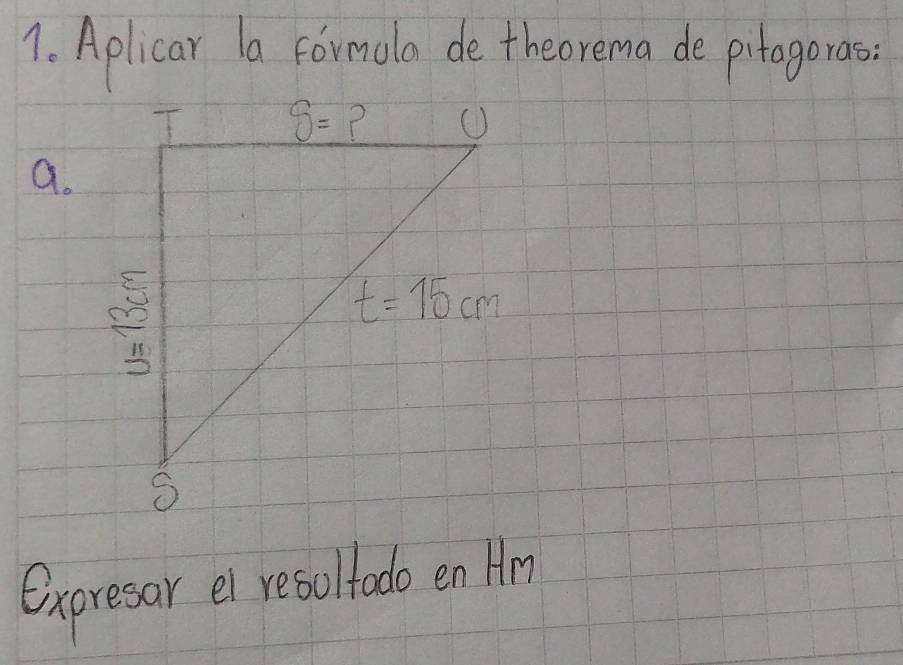 1. Aplicar la fórmula de theorema de pitagoras:
T S=? U
a.
U=13cm
t=15cm
S
Expresar el resultado en Hm